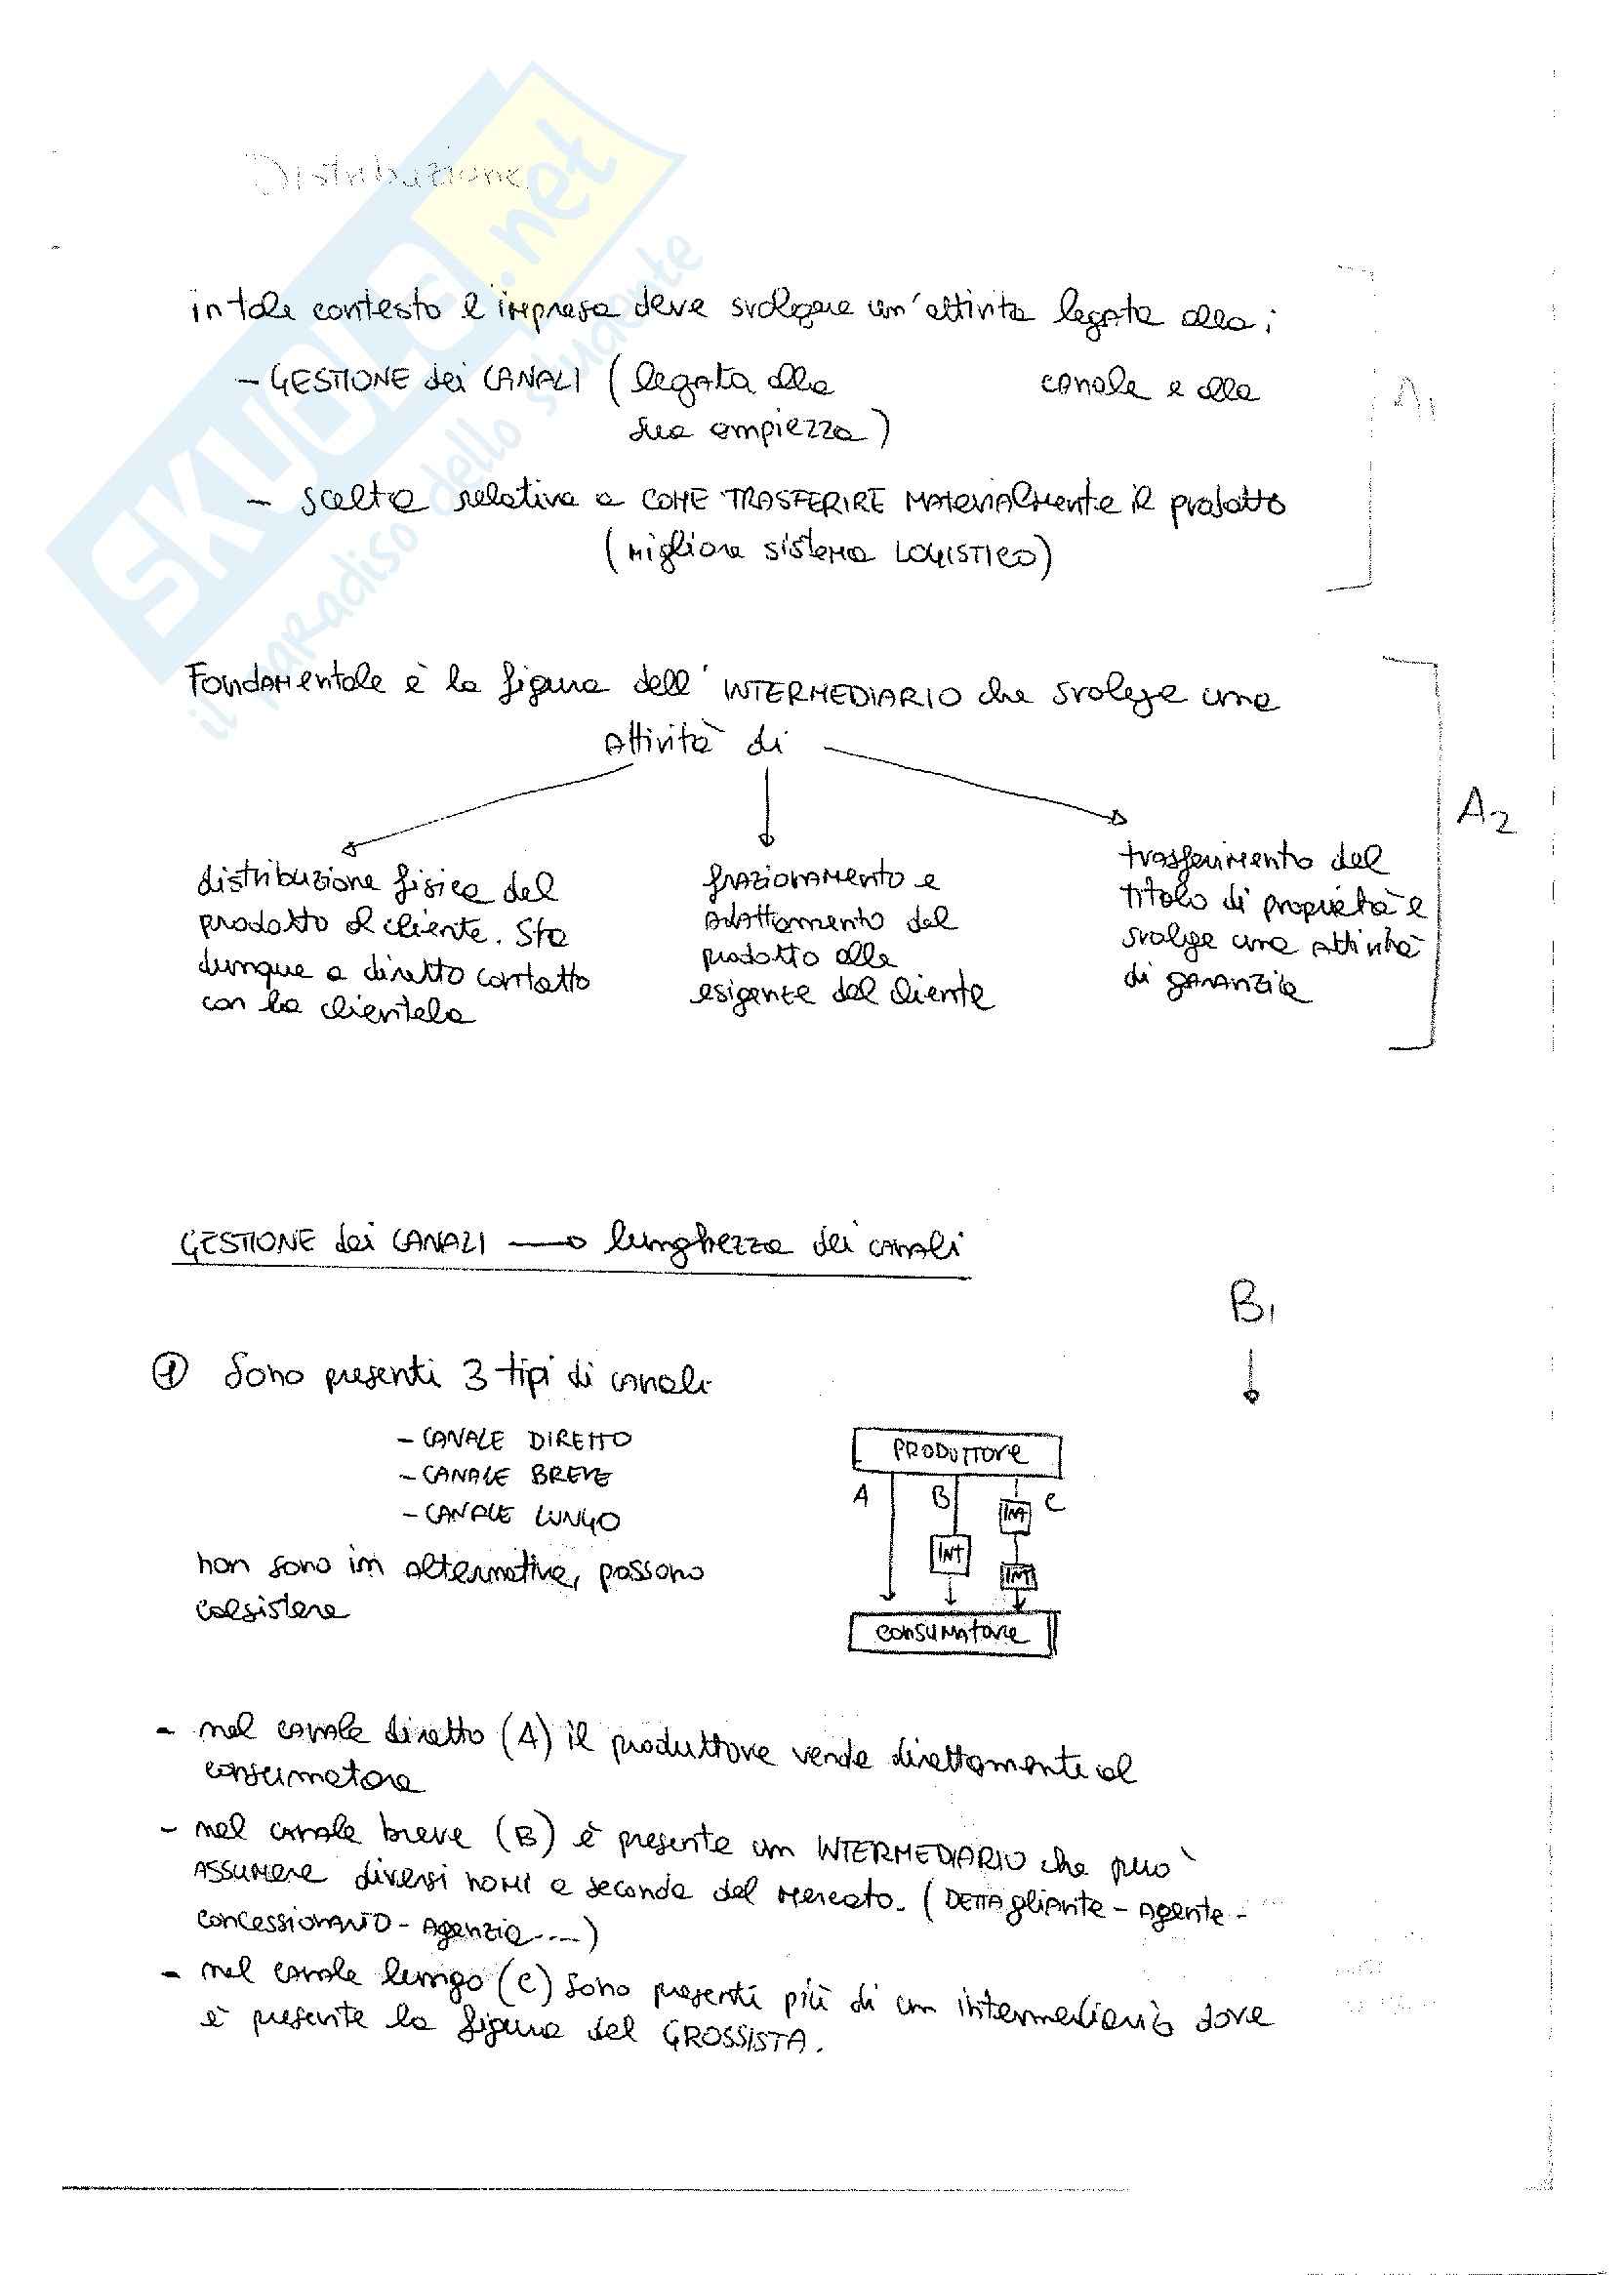 Distribuzione
SKUOLA.net
il paradiso dello studente
in tale contesto l'impresa deve svolgere un'attivita legata alla:
- GESTIONE dei CANALI (legata alla canale e alla
sua ampiezza)
A1
- scelta relativa a COME TRASFERIRE MATERIALMENTE il prodotto
(migliore sistema LOGISTICO)
FONDAMENTALE è la figura dell'INTERMEDIARIO che svolge una
attività di
A2
distribuzione fisica del
prodotto al cliente. Sta
dunque a diretto contatto
con la clientela
frazionamento e
adattamento del
prodotto alle
esigenze del cliente
trasferimento del
titolo di proprietà e
svolge una attività
di garanzia
GESTIONE dei CANALI → lunghezza dei canali
B1
① Sono presenti 3 tipi di canali
- CANALE DIRETTO
- CANALE BREVE
- CANALE LUNGO
non sono in alternativa, possono
coesistere
PRODUTTORE
A B C
INT
INT
INT
CONSUMATORE
- nel canale diretto (A) il produttore vende direttamente al
consumatore
- nel canale breve (B) è presente un INTERMEDIARIO che può
ASSUMERE diversi nomi a seconda del mercato. (DETTAgliante - Agente -
concessionario - Agenzia....)
- nel canale lungo (C) sono presenti più di un intermediario dove
è presente la figura del GROSSISTA.